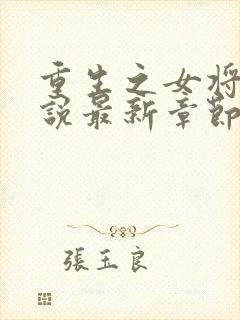 重生之女将
說最新章節
張玉良